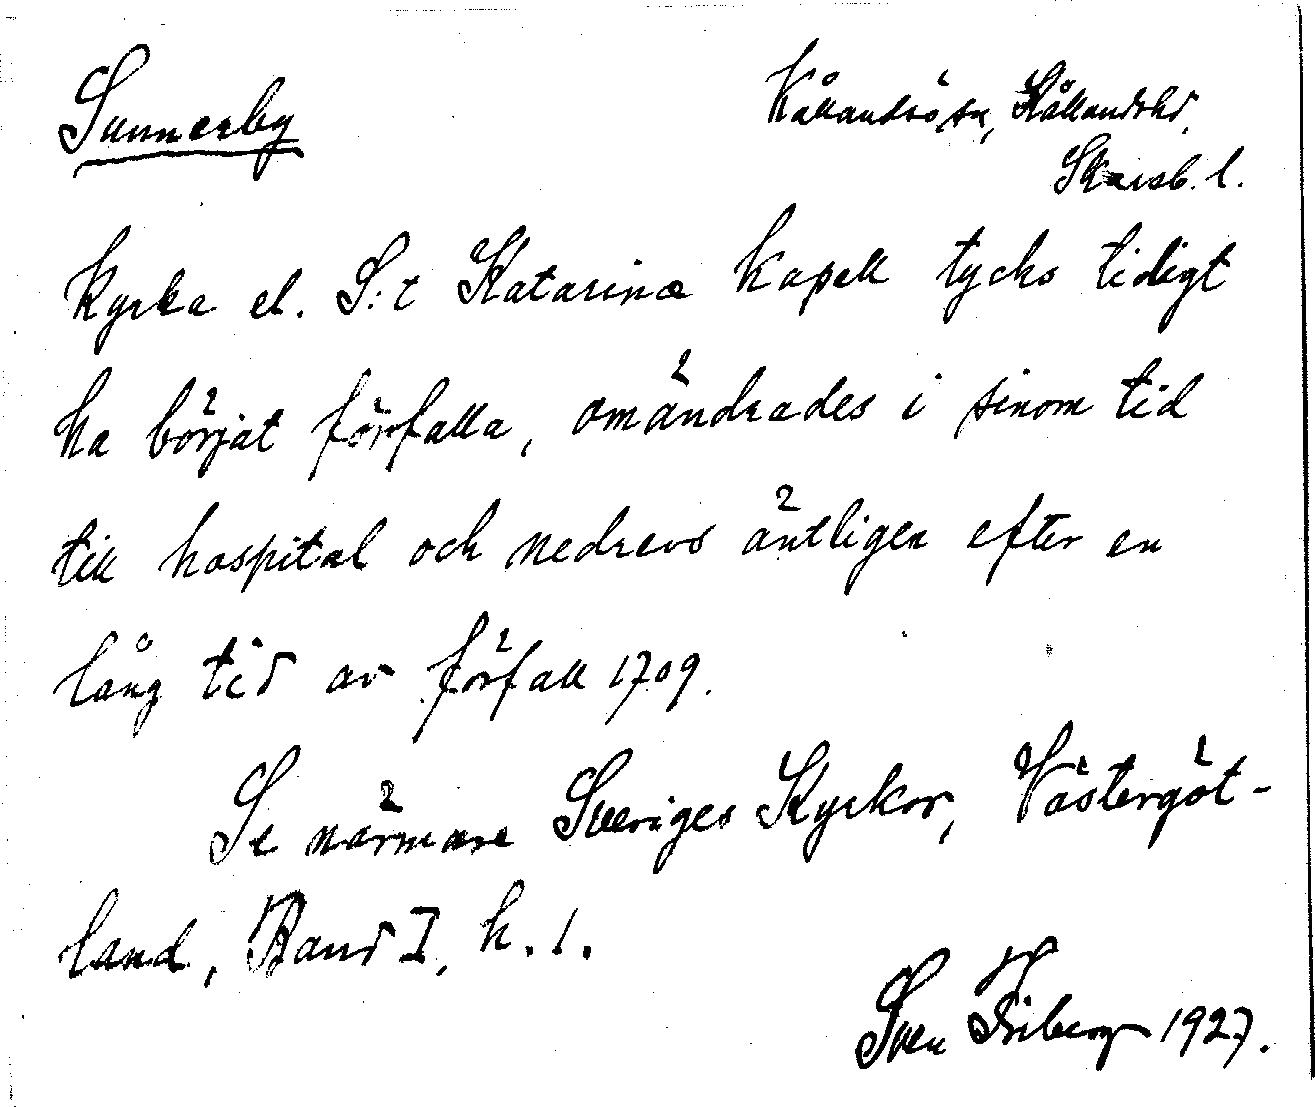 Sunnerby
Kållandsö sn, Kållandshd,
Skarab. l.
Kyrka el. S:t Katarina Kapell tycks tidigt
ha börjat förfalla, omändrades i sinom tid
till hospital och nedrevs äntligen efter en
lång tid av förfall 1709.
Se närmare Sveriges Kyrkor, Västergöt-
land, Band I, h. 1.
Sven Friberg 1927.